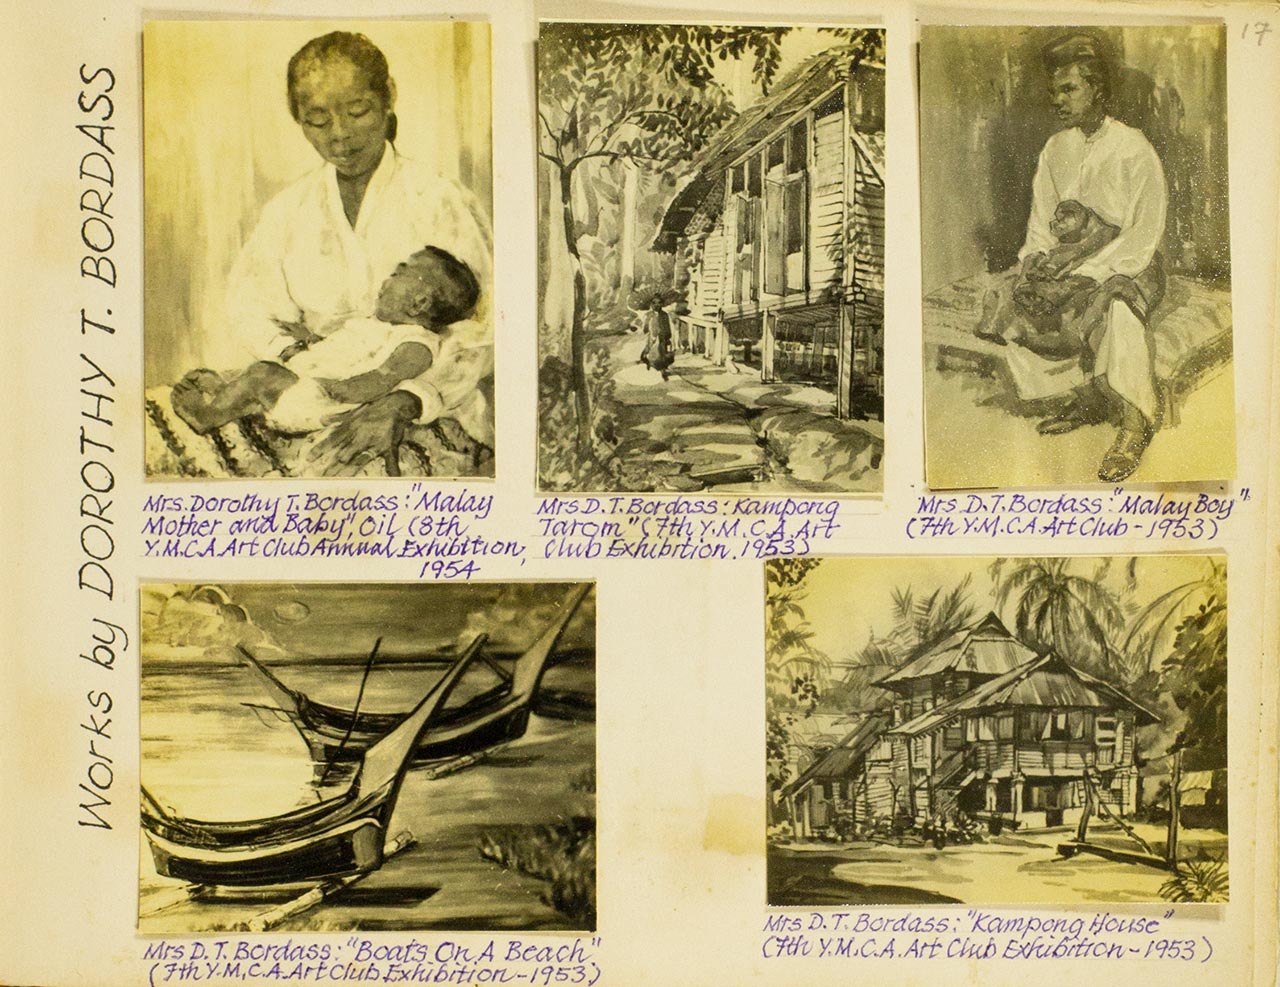 17
Works by DOROTHY T. BORDASS
Mrs. Dorothy T. Bordass: "Malay
Mother and Baby", Oil (8th
Y.M.C.A. Art Club Annual Exhibition,
1954
Mrs D. T. Bordass: Kampong
Tarom" (7th Y.M.C.A. Art
Club Exhibition. 1953)
Mrs. D. T. Bordass: "Malay Boy"
(7th Y.M.C.A. Art Club - 1953)
Mrs D. T. Bordass: "Boats On A Beach"
(7th Y.M.C.A. Art Club Exhibition - 1953)
Mrs D. T. Bordass: "Kampong House"
(7th Y.M.C.A. Art Club Exhibition - 1953)